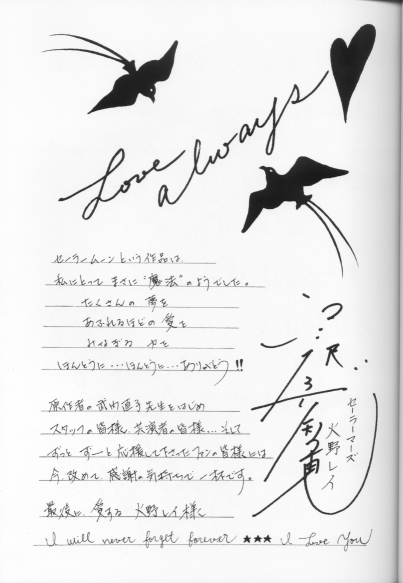 Love
always
セーラームーンという作品は
私にとって まさに"魔法"のようでした。
たくさんの 夢を
あふれるほどの 愛を
みなぎる 力を
ほんとうに…ほんとうに…ありがとう!!
原作者の武内直子先生をはじめ
スタッフの皆様、共演者の皆様…そして
ずっと ずーと応援して下さったファンの皆様には
今、改めて 感謝の気持ちで一杯です。
最後に、愛する 火野レイ様へ
I will never forget forever ★★★ I Love You
セーラーマーズ
火野レイ